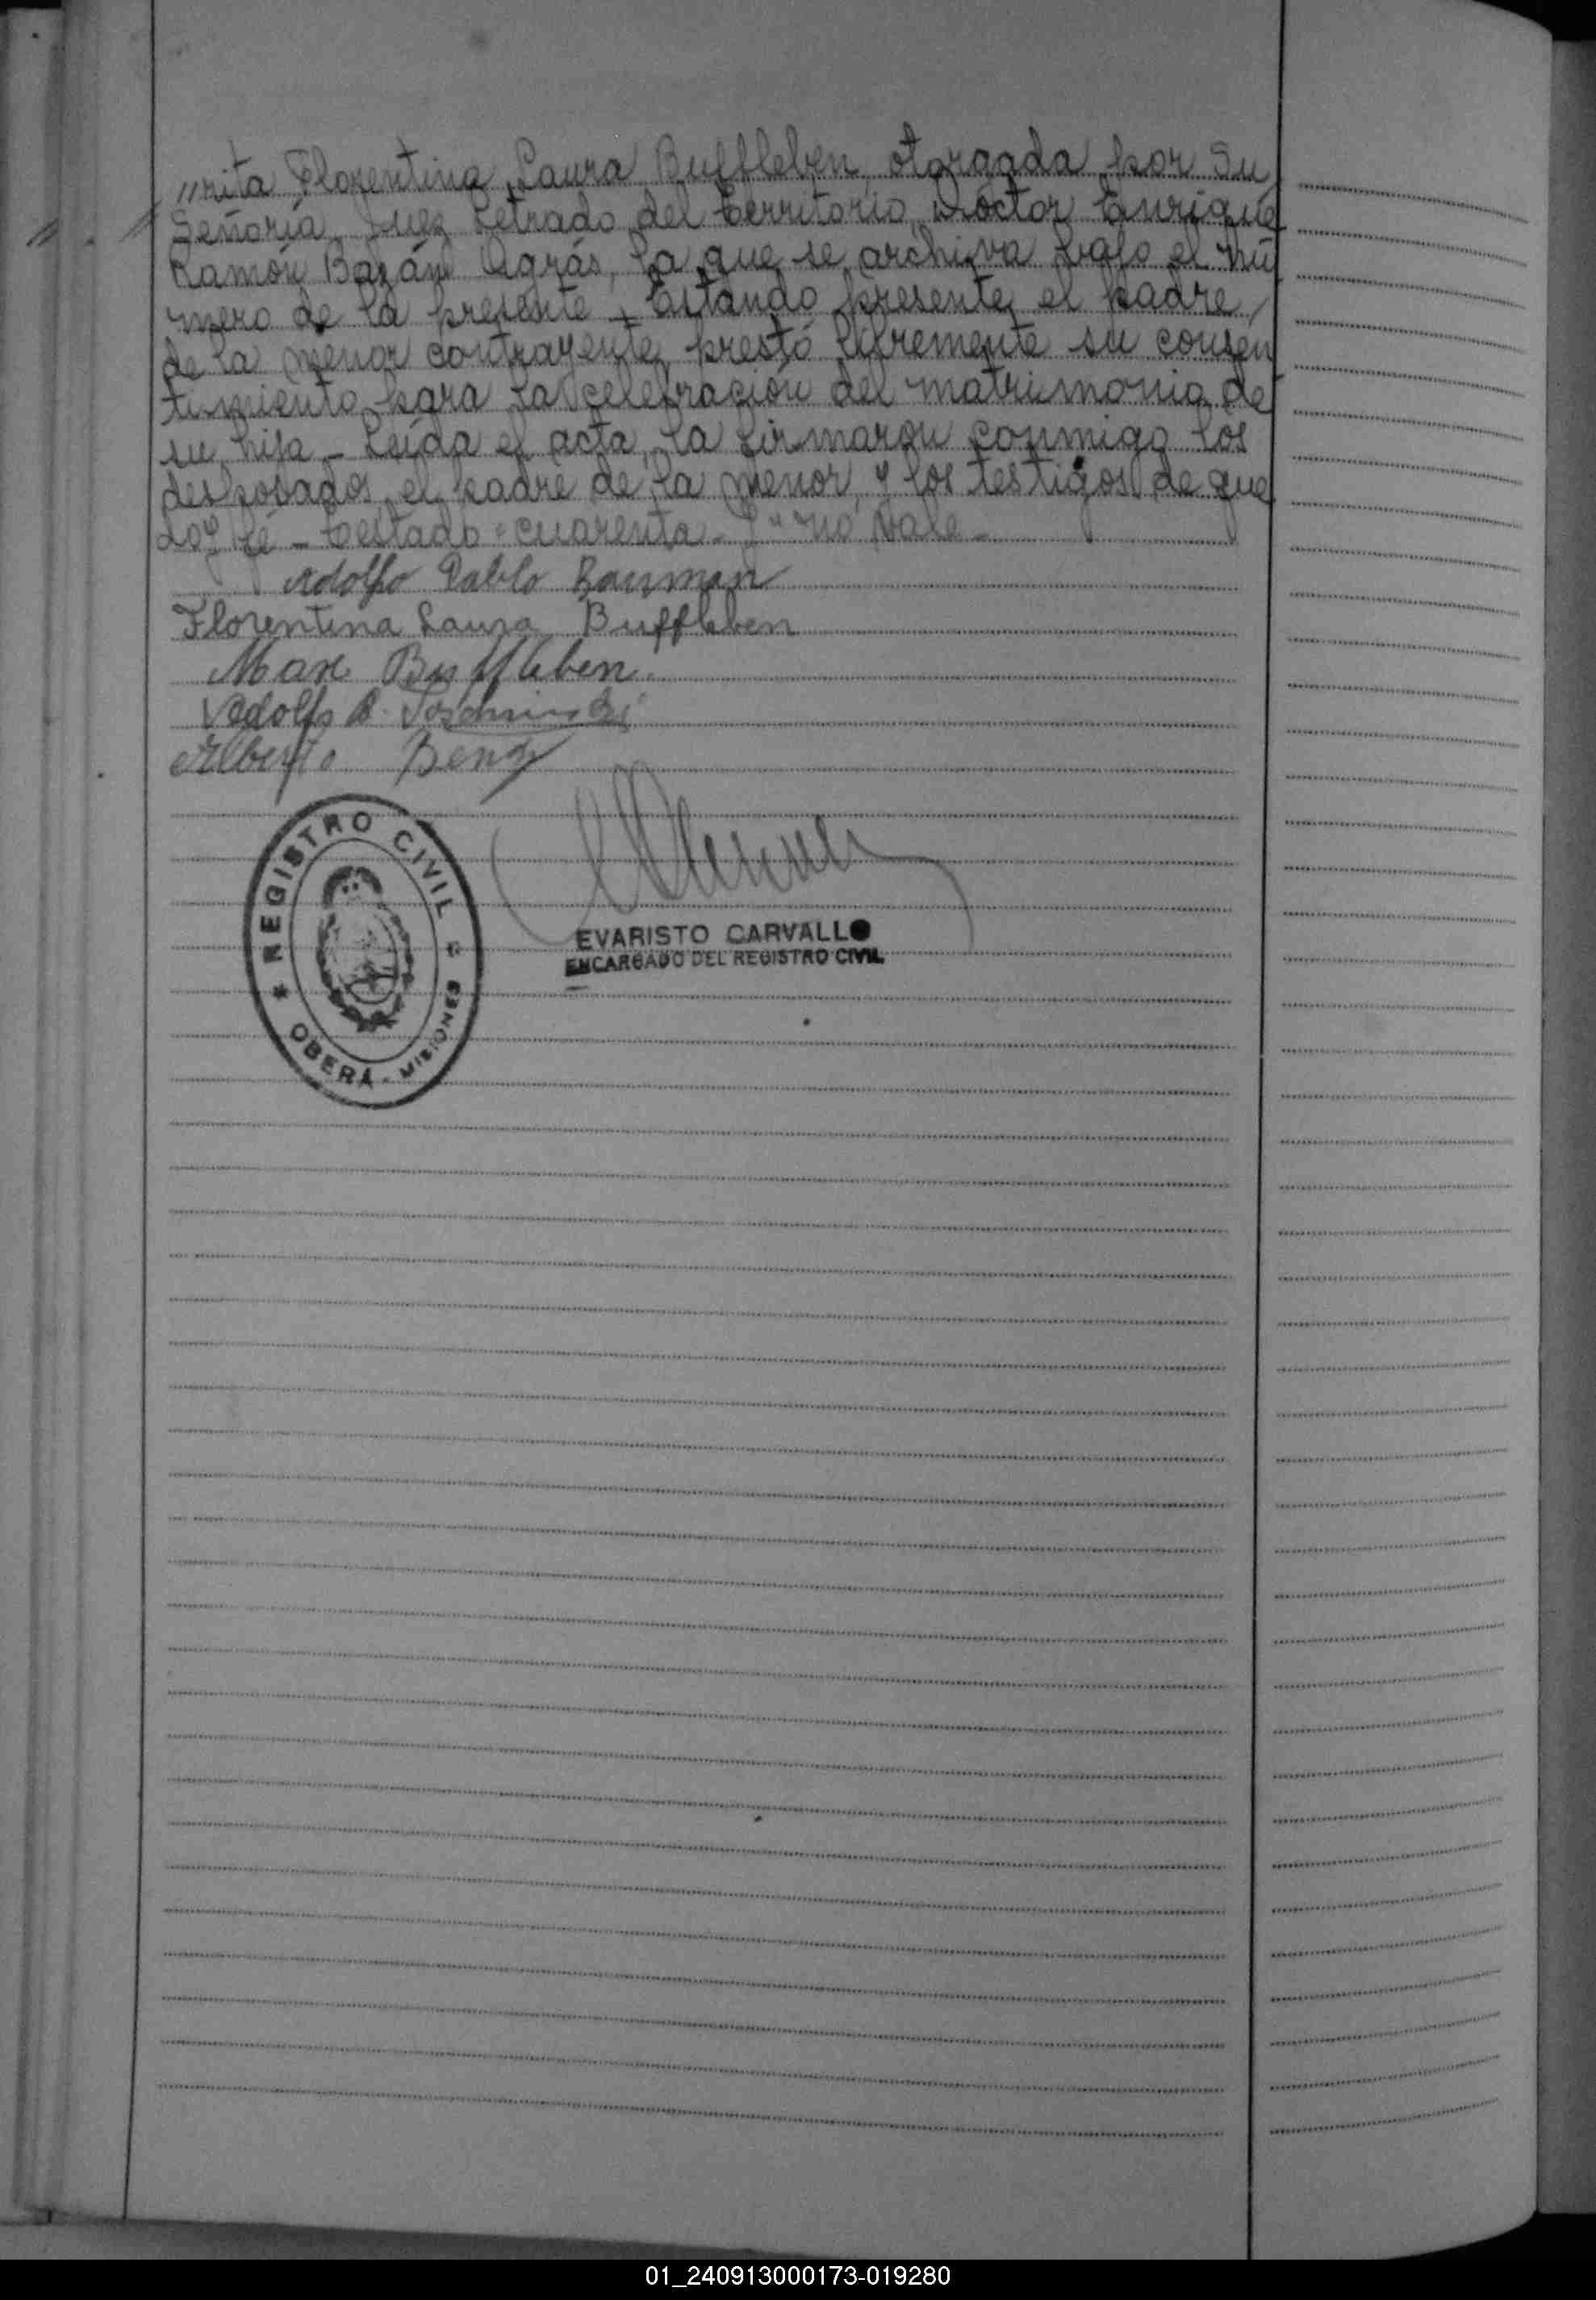 "rita Florentina Laura Buffleben, otorgada por Su
Señoría Juez Letrado del Territorio, Doctor Enrique
Ramón Bazán Agrás, la que se archiva bajo el nú
mero de la presente - Estando presente el padre
de la menor contrayente, prestó libremente su consen
timiento para la celebración del matrimonio de
su hija - Leída el acta, la firmaron conmigo los
desposados, el padre de la menor, y los testigos de que
doy fé - Testado "cuarenta - no vale -
Adolfo Pablo Bauman
Florentina Laura Buffleben
Max Buffleben.
Adolfo
Alberto Benz
REGISTRO CIVIL
OBERÁ - MISIONES
EVARISTO CARVALLO
ENCARGADO DEL REGISTRO CIVIL
01_240913000173-019280